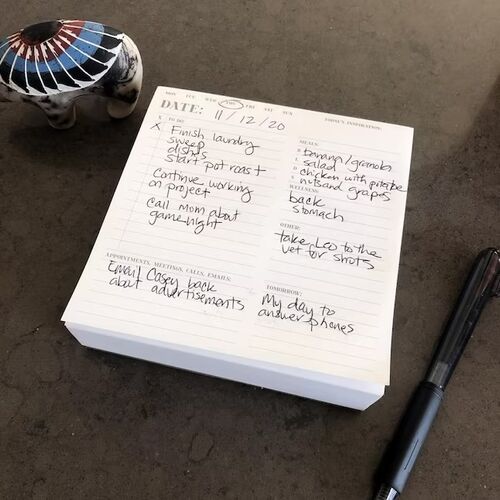 MON TUE WED THU FRI SAT SUN
DATE: 11/12/20
TODAY'S INSPIRATION:
X TO DO:
X Finish laundry
sweep
dishes
start pot roast
Continue working
on project
call mom about
game night
APPOINTMENTS, MEETINGS, CALLS, EMAILS:
Email Casey back
about advertisements
MEALS:
B banana/granola
L salad
D chicken with
S nuts and grapes
WELLNESS:
back
stomach
OTHER:
take Leo to the
vet for shots
TOMORROW:
My day to
answer phones